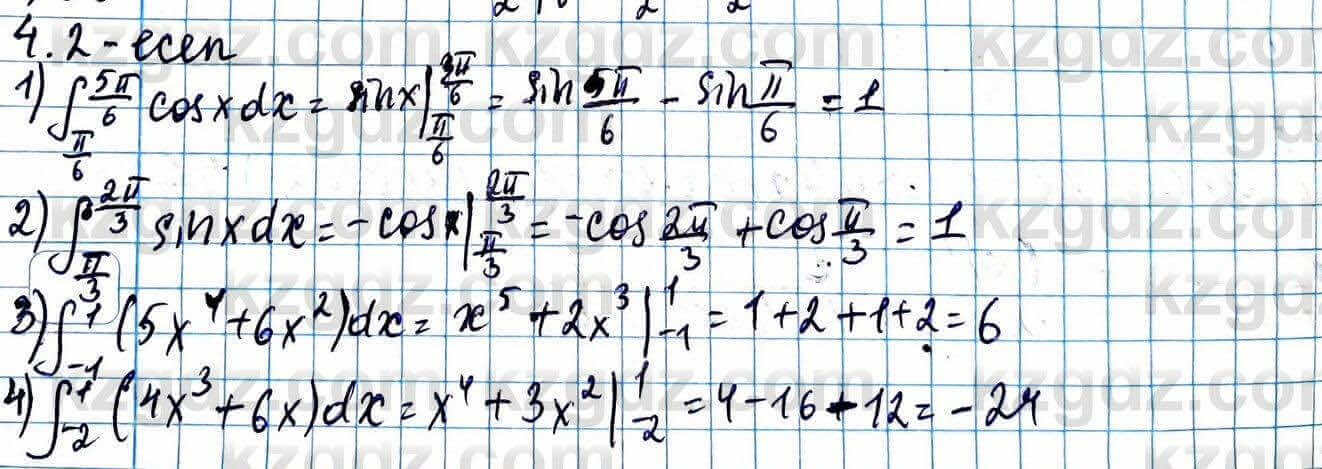 4.2-есеп
1) ∫_{π/6}^{5π/6} cosxdx = sinx|_{π/6}^{5π/6} = sin 5π/6 - sin π/6 = 1
2) ∫_{π/3}^{2π/3} sinxdx = -cosx|_{π/3}^{2π/3} = -cos 2π/3 + cos π/3 = 1
3) ∫_{-1}^{1} (5x⁴+6x²)dx = x⁵+2x³|_{-1}^{1} = 1+2+1+2=6
4) ∫_{-2}^{1} (4x³+6x)dx = x⁴+3x²|_{-2}^{1} = 4-16-12=-24
kzgdz.com